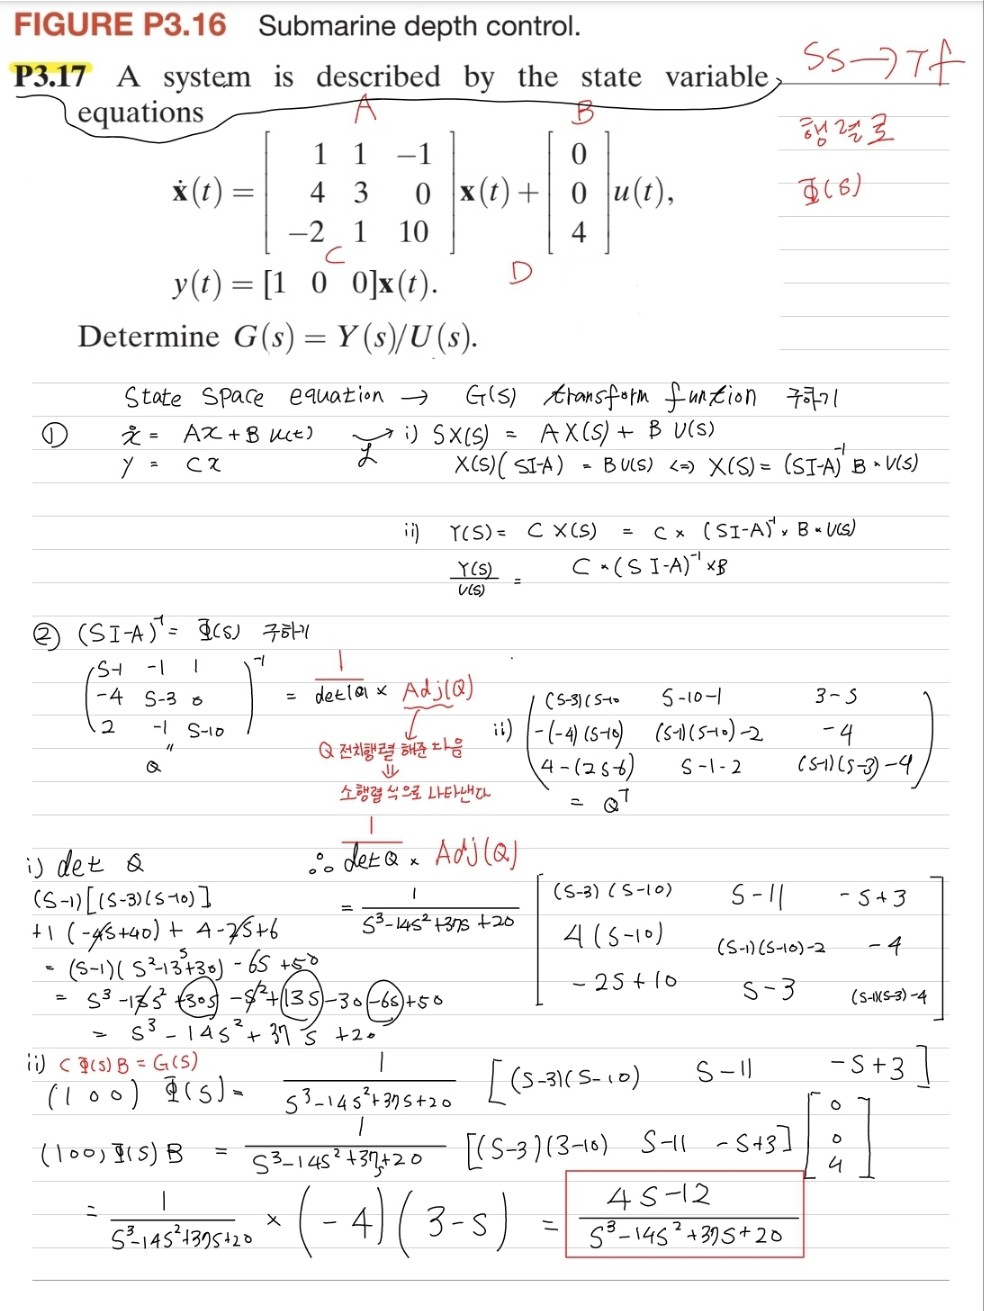 FIGURE P3.16 Submarine depth control.
P3.17 A system is described by the state variable
equations
SS→Tf
행렬로
Φ(s)
A
B
ẋ(t) = [1 1 −1; 4 3 0; −2 1 10] x(t) + [0; 0; 4] u(t),
C
D
y(t) = [1 0 0]x(t).
Determine G(s) = Y(s)/U(s).
State Space equation → G(s) transform funtion 구하기
① ẋ = Ax + B u(t) ℒ→ i) SX(s) = AX(s) + B U(s)
y = Cx X(s)(SI-A) = BU(s) <=> X(s) = (SI-A)⁻¹ B · U(s)
ii) Y(s) = C X(s) = C × (SI-A)⁻¹ × B × U(s)
Y(s)/U(s) = C × (SI-A)⁻¹ × B
② (SI-A)⁻¹ = Φ(s) 구하기
(S-1 -1 1; -4 S-3 0; 2 -1 S-10)⁻¹ = 1/detQ × Adj(Q)
" Q
Q 전치행렬 해준 다음
⇓
소행렬식으로 나타낸다
ii) ((S-3)(S-10 S-10-1 3-S; -(-4)(S-10) (S-1)(S-10)-2 -4; 4-(2S-6) S-1-2 (S-1)(S-3)-4)
= Qᵀ
i) det Q
∴ 1/detQ × Adj(Q)
(S-1)[(S-3)(S-10)]
+1(-4S+40) + 4-2S+6
= (S-1)(S²-13S+30) - 6S + 50
= S³ -13S² +30S -S² +13S -30 -6S +50
= S³ - 14S² + 37S + 20
= 1/(S³-14S²+37S+20) [(S-3)(S-10) S-11 -S+3; 4(S-10) (S-1)(S-10)-2 -4; -2S+10 S-3 (S-1)(S-3)-4]
ii) CΦ(s)B = G(s)
(1 0 0) Φ(s) = 1/(S³-14S²+37S+20) [(S-3)(S-10) S-11 -S+3]
(1 0 0) Φ(s) B = 1/(S³-14S²+37S+20) [(S-3)(3-10) S-11 -S+3] [0; 0; 4]
= 1/(S³-14S²+37S+20) × (-4)(3-S) = (4S-12)/(S³-14S²+37S+20)